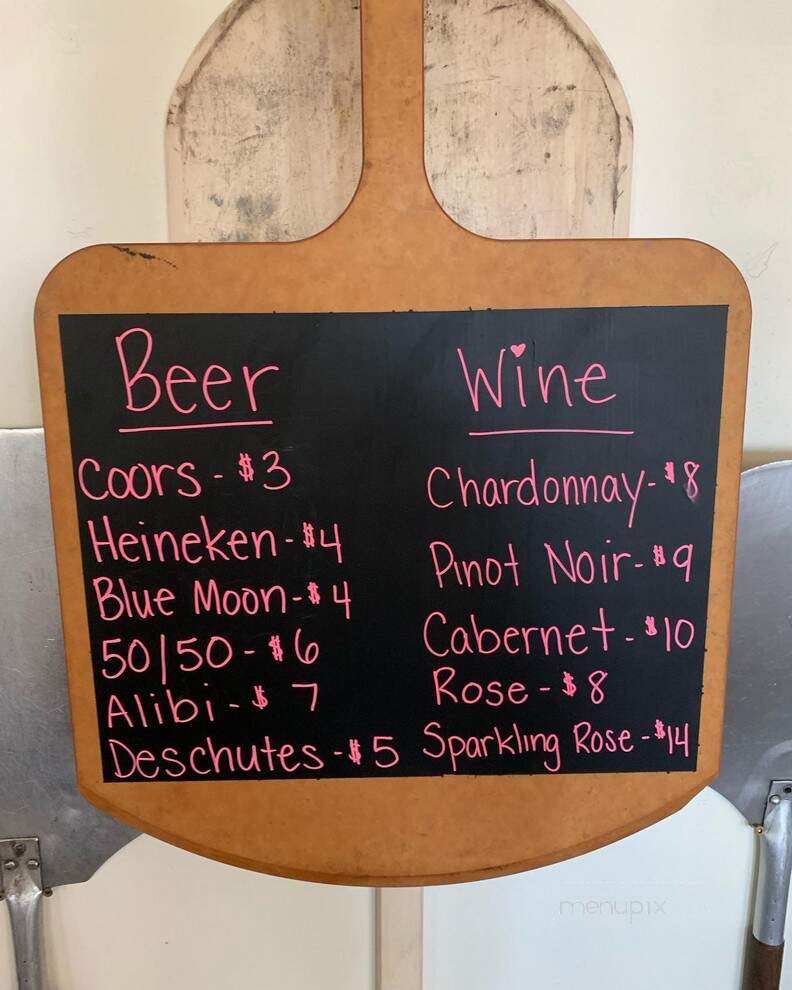 Beer
Coors - $3
Heineken - $4
Blue Moon - $4
50/50 - $6
Alibi - $ 7
Deschutes - $5
Wine
Chardonnay - $8
Pinot Noir - $9
Cabernet - $10
Rose - $8
Sparkling Rose - $14
menupix